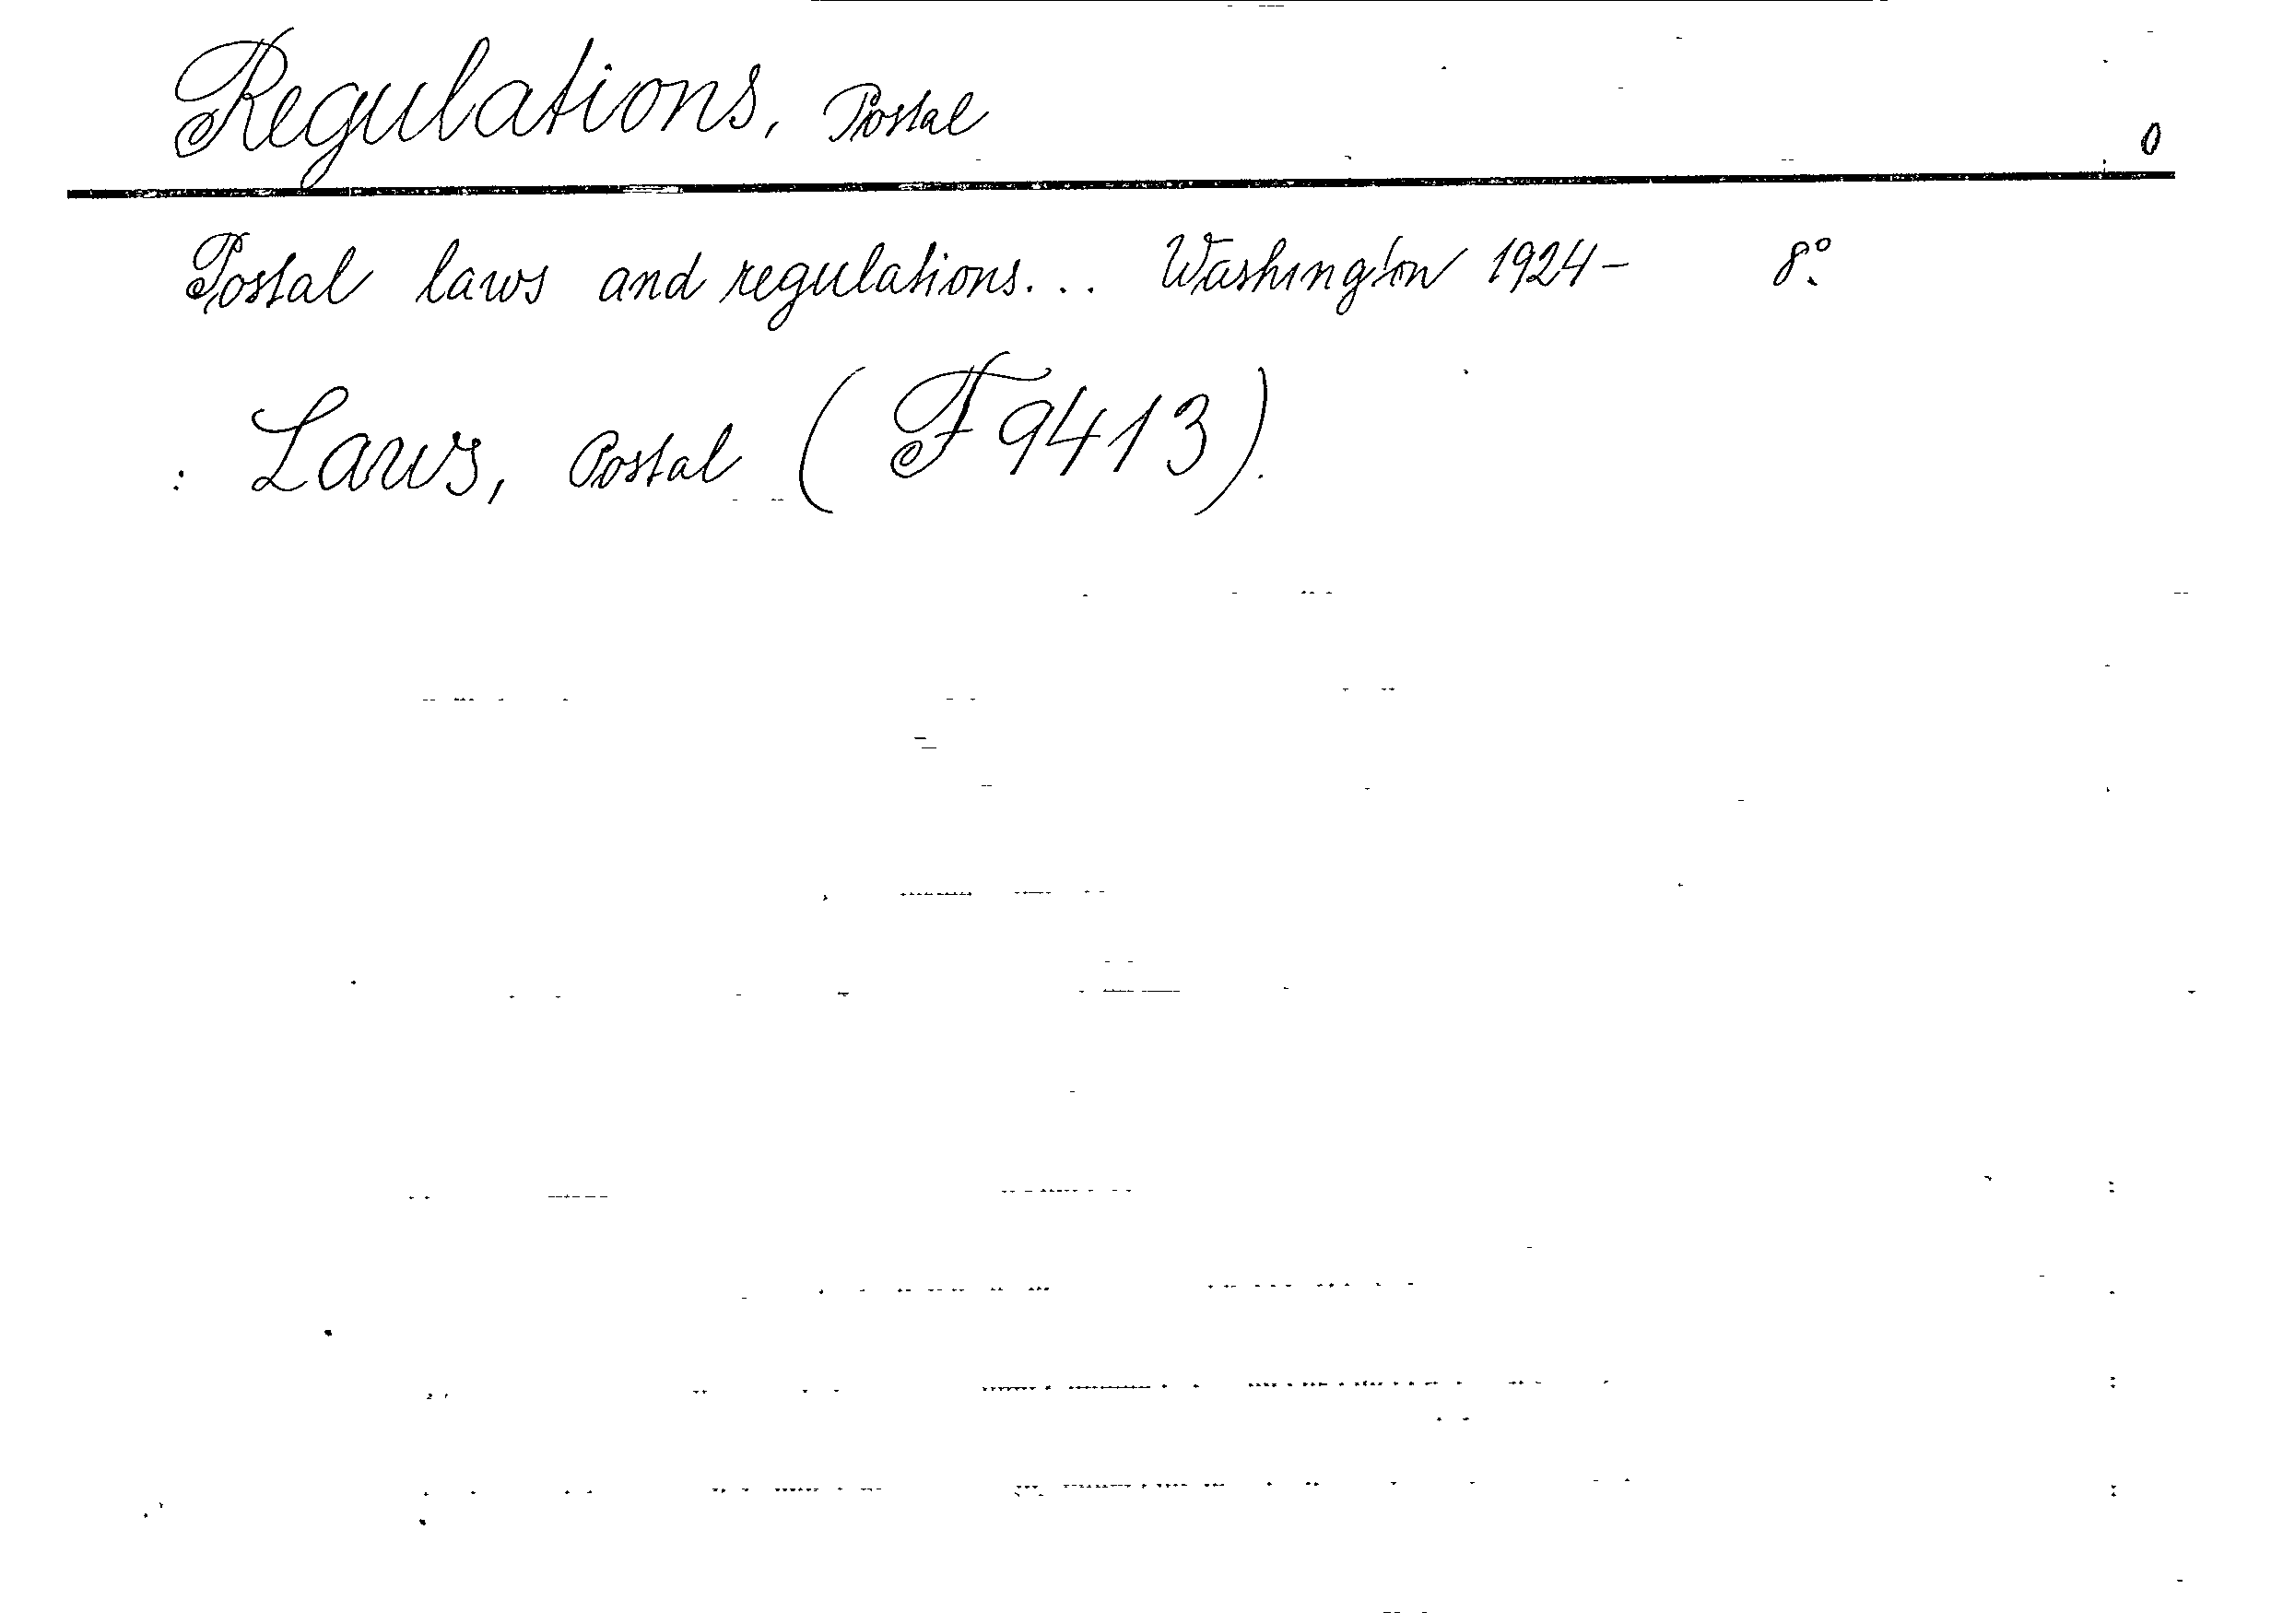 Regulations, Postal 0
Postal laws and regulations... Washington 1924- 8.º
: Laws, Postal (F 9413).